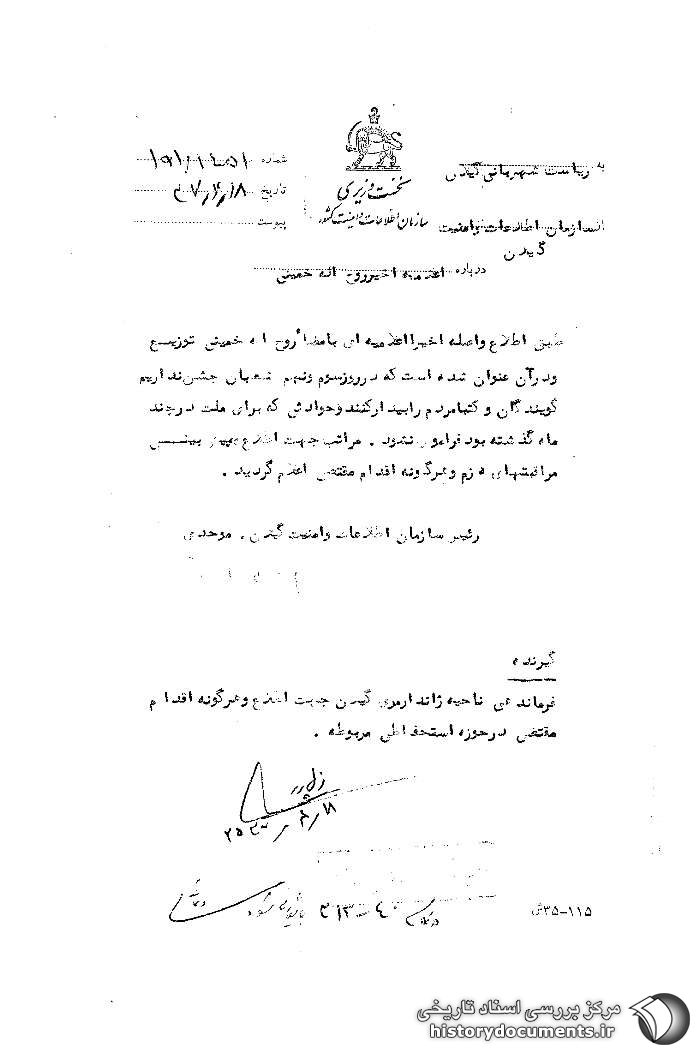 نخست وزیری
سازمان اطلاعات و امنیت کشور
به ریاست شهربانی گیلان
از سازمان اطلاعات و امنیت
گیلان
درباره اعلامیه اخیر روح اله خمینی
شماره
تاریخ ۳۷/۴/۱۸
پیوست
طبق اطلاع واصله اخیرا اعلامیه ای بامضا روح اله خمینی توزیع
ودرآن عنوان شده است که درروزسوم ونیمه شعبان جشن نداریم
گویندگان و مردم رابیدارکنند وحوادثی که برای ملت درچند
ماه گذشته بود فراموش نشود . مراتب جهت اطلاع
مراقبتهای لازم وهرگونه اقدام مقتضی اعلام گردید .
رئیس سازمان اطلاعات وامنیت گیلان . موحدی
گیرنده
فرماندهی ناحیه ژاندارمری گیلان جهت اطلاع وهرگونه اقدام
مقتضی درحوزه استحفاظی مربوطه .
۳۵-۱۱۵ش
مرکز بررسی اسناد تاریخی
historydocuments.ir